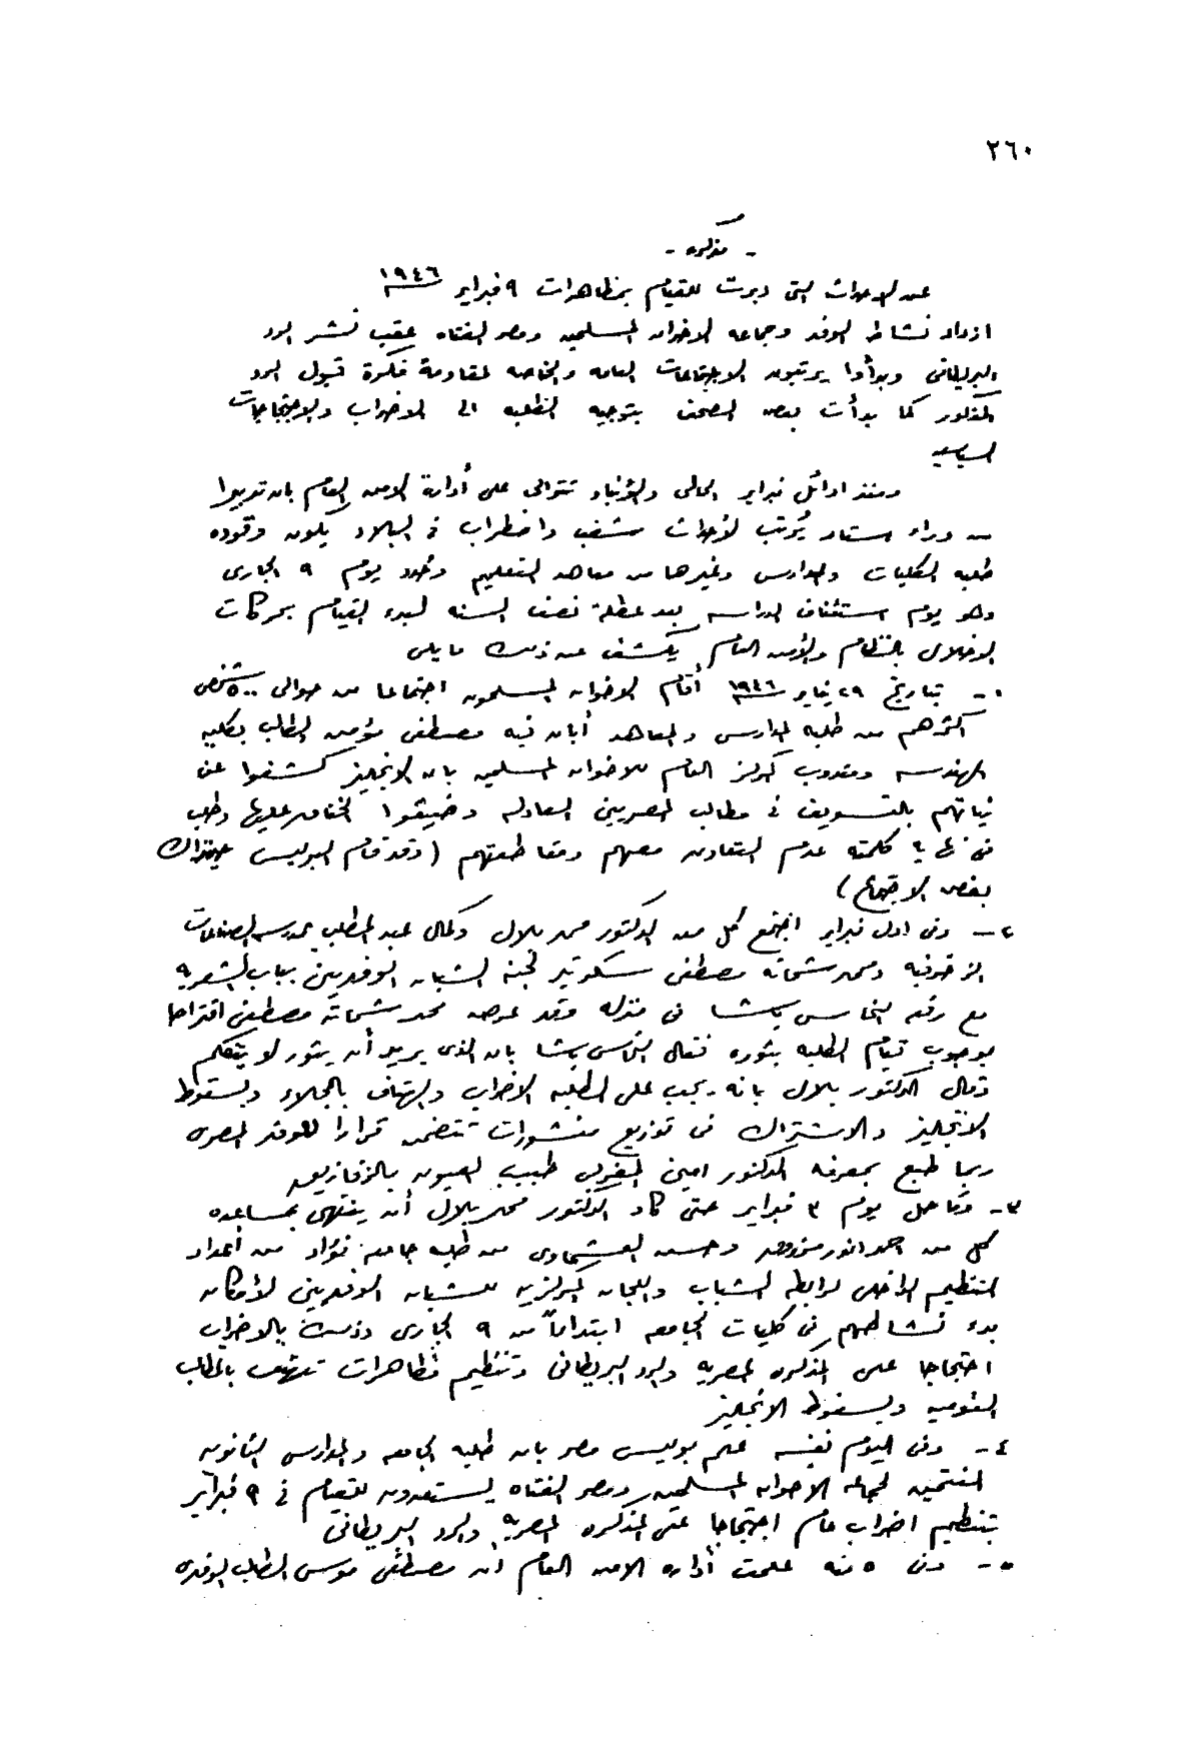 ٢٦٠
- مذكرة -
عن الاحداث التى دبرت للقيام بمظاهرات ٩ فبراير ١٩٤٦
ازداد نشاط الوفد وجماعه الاخوان المسلمين ومصر الفتاه عقب نشر الرد
البريطانى وبدأوا يرتبون الاجتماعات العامه والخاصه لمقاومة فكرة قبول الرد
المذكور كما بدأت بعض الصحف بتوجيه الطلبه الى الاضراب والاحتجاجات
السياسيه
ومنذ اوائل فبراير الحالى والأنباء تتوالى على أدارة الامن العام بان تدبيرا
من وراء ستار يُرتب لأحداث شغب واضطراب فى البلاد يكون وقوده
طلبه الكليات والمدارس وغيرها من معاهد التعليم وحُدد يوم ٩ الجارى
وهو يوم استئناف الدراسه بعد عطلة نصف السنه لبدء القيام بحركات
الاخلال بالنظام والأمن العام يكشف عن ذلك ما يلى
١ - بتاريخ ٢٩ يناير ١٩٤٦ أقام الاخوان المسلمون اجتماعا من حوالى ٥٠٠ شخص
اكثرهم من طلبه المدارس والمعاهد أبان فيه مصطفى مؤمن الطالب بكليه
الهندسه ومندوب المركز العام للاخوان المسلمين بان الانجليز كشفوا عن
نياتهم بالتسويف فى مطالب المصريين العادله وضيقوا الخناق عليها وطلب
فى نهاية كلمته عدم التعاون معهم ومقاطعتهم (وقد قام البوليس
بفض الاجتماع)
٢ - وفى اول فبراير اجتمع كل من الدكتور محمد بلال وكمال عبد المطلب بمدرسه الصناعات
الزخرفيه ومحمد شحاته مصطفى سكرتير لجنه الشبان الوفديين بباب الشعريه
مع رفعه النحاس باشا فى منزله وقد عرض محمد شحاته مصطفى اقتراحا
بوجوب قيام الطلبه بثوره فقال النحاس باشا بان الذى يريد أن يثور لا يتكلم
وقال الدكتور بلال بانه يجب على الطلبه الاضراب والهتاف بالجلاء وبسقوط
الانجليز والاشتراك فى توزيع منشورات تتضمن قرارا للوفد المصرى
ربما طبع بمعرفه الدكتور امين المغربى طبيب العيون بالزقازيق
٣ - وما حل يوم ٣ فبراير حتى كاد الدكتور محمد بلال أن ينتهى بمساعده
كل من احمد انور وحسن العشماوى من طلبه جامعه فؤاد من اعداد
التنظيم الداخلى لرابطه الشباب واللجان المركزيه للشبان الوفديين لأمكان
بدء نشاطهم فى كليات الجامعه ابتداءاً من ٩ الجارى وذلك بالاضراب
احتجاجا على المذكره المصريه والرد البريطانى وتنظيم مظاهرات تهتف بالمطالب
القوميه وبسقوط الانجليز
٤ - وفى اليوم نفسه علم بوليس مصر بان طلبه الجامعه والمدارس الثانويه
المنتمين لجماعه الاخوان المسلمين ومصر الفتاه يستعدون للقيام فى ٩ فبراير
بتنظيم اضراب عام احتجاجا على المذكره المصريه والرد البريطانى
٥ - وفى ٥ منه علمت أداره الامن العام أن مصطفى موسى الطالب الوفدى